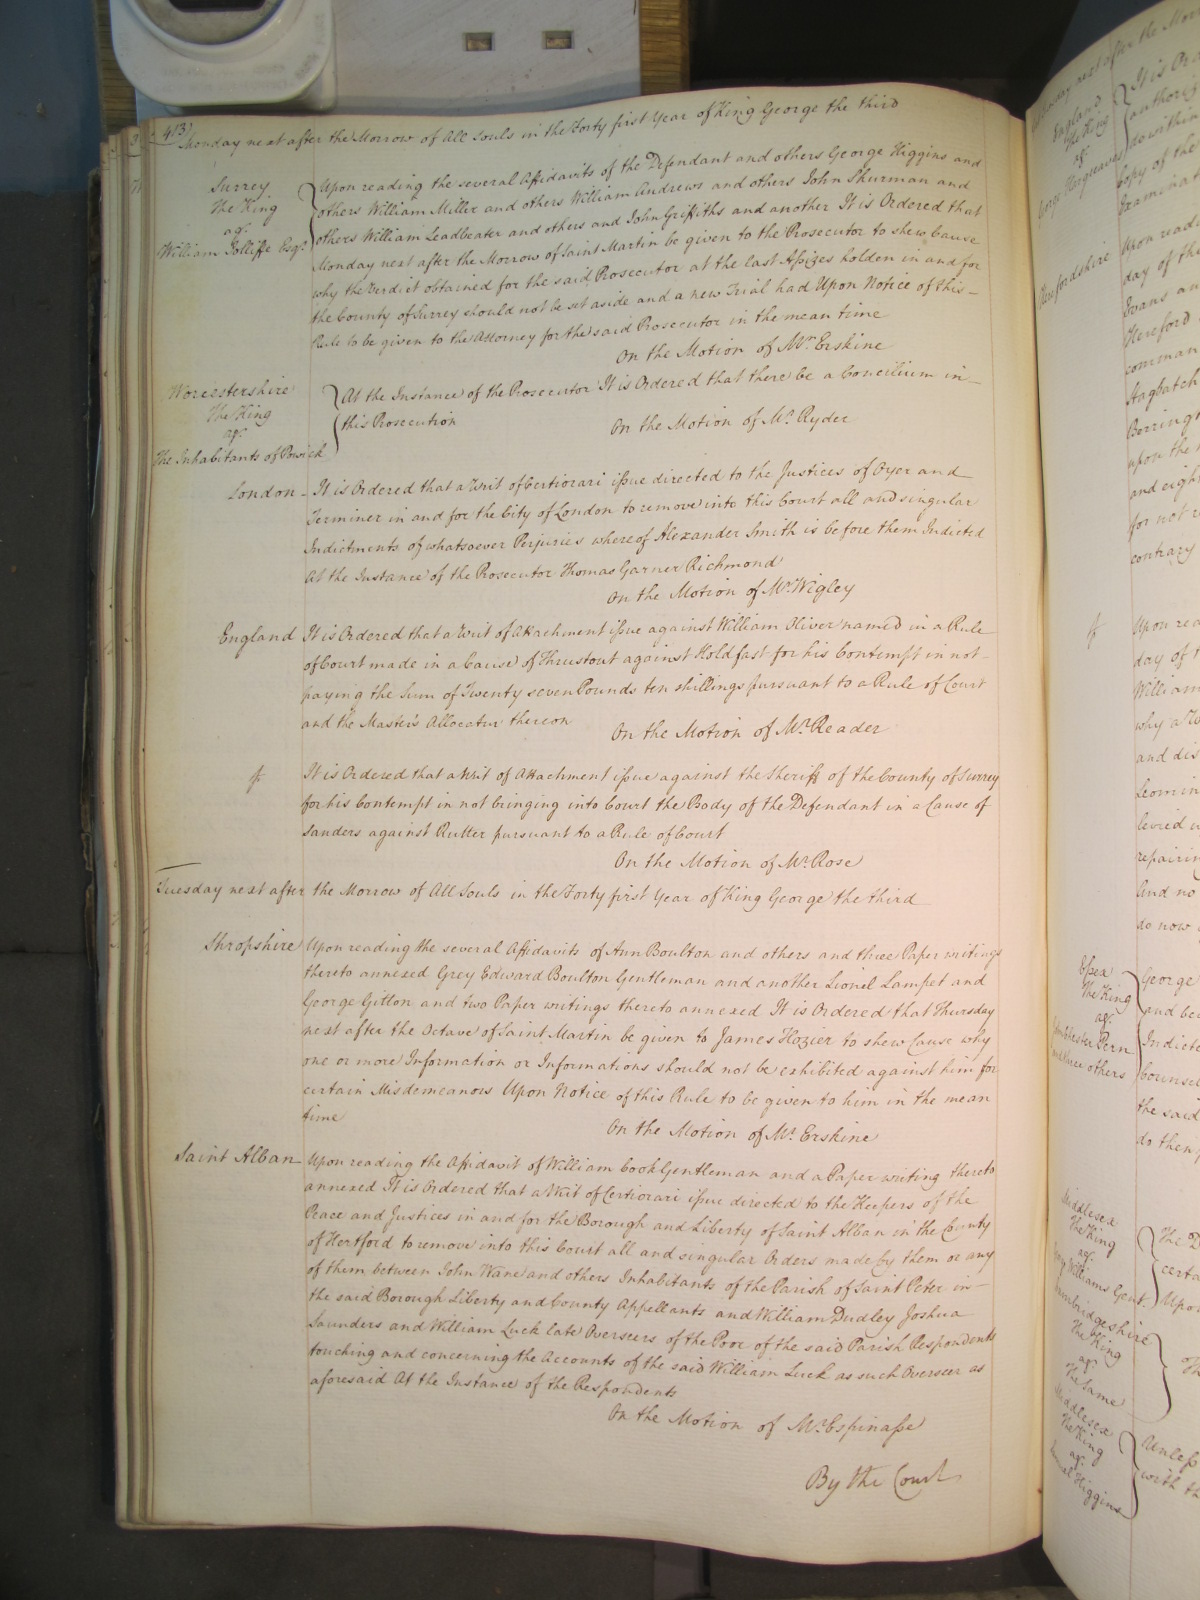 413
Monday next after the Morrow of All Souls in the Forty first Year of King George the third
Surrey
The King
agt.
William Jolliffe Esqr.
Upon reading the several Affidavits of the Defendant and others George Higgins and
others William Miller and others William Andrews and others John Shurman and
others William Leadbeater and others and John Griffiths and another It is Ordered that
Monday next after the Morrow of Saint Martin be given to the Prosecutor to shew Cause
why the Verdict obtained for the said Prosecutor at the last Assizes holden in and for
the County of Surrey should not be set aside and a new Trial had Upon Notice of this
Rule to be given to the Attorney for the said Prosecutor in the mean time
On the Motion of Mr. Erskine
Worcestershire
The King
agt.
The Inhabitants of Powick
At the Instance of the Prosecutor It is Ordered that there be a Concilium in
this Prosecution
On the Motion of Mr. Ryder
London
It is Ordered that a Writ of Certiorari issue directed to the Justices of Oyer and
Terminer in and for the City of London to remove into this Court all and singular
Indictments of whatsoever Perjuries whereof Alexander Smith is before them Indicted
At the Instance of the Prosecutor Thomas Garner Richmond
On the Motion of Mr. Wigley
England
It is Ordered that a Writ of Attachment issue against William Oliver named in a Rule
of Court made in a Cause of Thrustout against Holdfast for his Contempt in not
paying the Sum of Twenty seven Pounds ten shillings pursuant to a Rule of Court
and the Master's Allocatur thereon
On the Motion of Mr. Reader
It is Ordered that a Writ of Attachment issue against the Sheriff of the County of Surrey
for his Contempt in not bringing into Court the Body of the Defendant in a Cause of
Sanders against Rutter pursuant to a Rule of Court
On the Motion of Mr. Rose
Tuesday next after the Morrow of All Souls in the Forty first Year of King George the third
Shropshire
Upon reading the several Affidavits of Ann Boulton and others and three Paper writings
thereto annexed Grey Edward Boulton Gentleman and another Lionel Lampet and
George Gitton and two Paper writings thereto annexed It is Ordered that Thursday
next after the Octave of Saint Martin be given to James Hozier to shew Cause why
one or more Information or Informations should not be exhibited against him for
certain Misdemeanors Upon Notice of this Rule to be given to him in the mean
time
On the Motion of Mr. Erskine
Saint Alban
Upon reading the Affidavit of William Cook Gentleman and a Paper writing thereto
annexed It is Ordered that a Writ of Certiorari issue directed to the Keepers of the
Peace and Justices in and for the Borough and Liberty of Saint Alban in the County
of Hertford to remove into this Court all and singular Orders made by them or any
of them between John Wane and others Inhabitants of the Parish of Saint Peter in
the said Borough Liberty and County Appellants and William Dudley Joshua
Saunders and William Luck late Overseers of the Poor of the said Parish Respondents
touching and concerning the Accounts of the said William Luck as such Overseer as
aforesaid At the Instance of the Respondents
On the Motion of Mr. Espinasse
By the Court
England
The King
agt.
George Hargreaves
It is Ord
authoris
to within
Copy of the
Examinat
Herefordshire
Upon readi
day of the
Evans an
Hereford
comman
Stagbatch
Berring
upon the
and eigh
for not r
contrary
Upon rea
day of t
William
why a W
and dis
Leomin
levied u
repairin
And no
do now
Essex
The King
agt.
and three others
George
and be
Indicte
Counse
the said
do then
Middlesex
The King
agt.
Williams Gent.
The D
certa
Upo
Cambridgeshire
The King
agt.
The Same
Th
Middlesex
The King
agt.
Higgins
Unless
with th